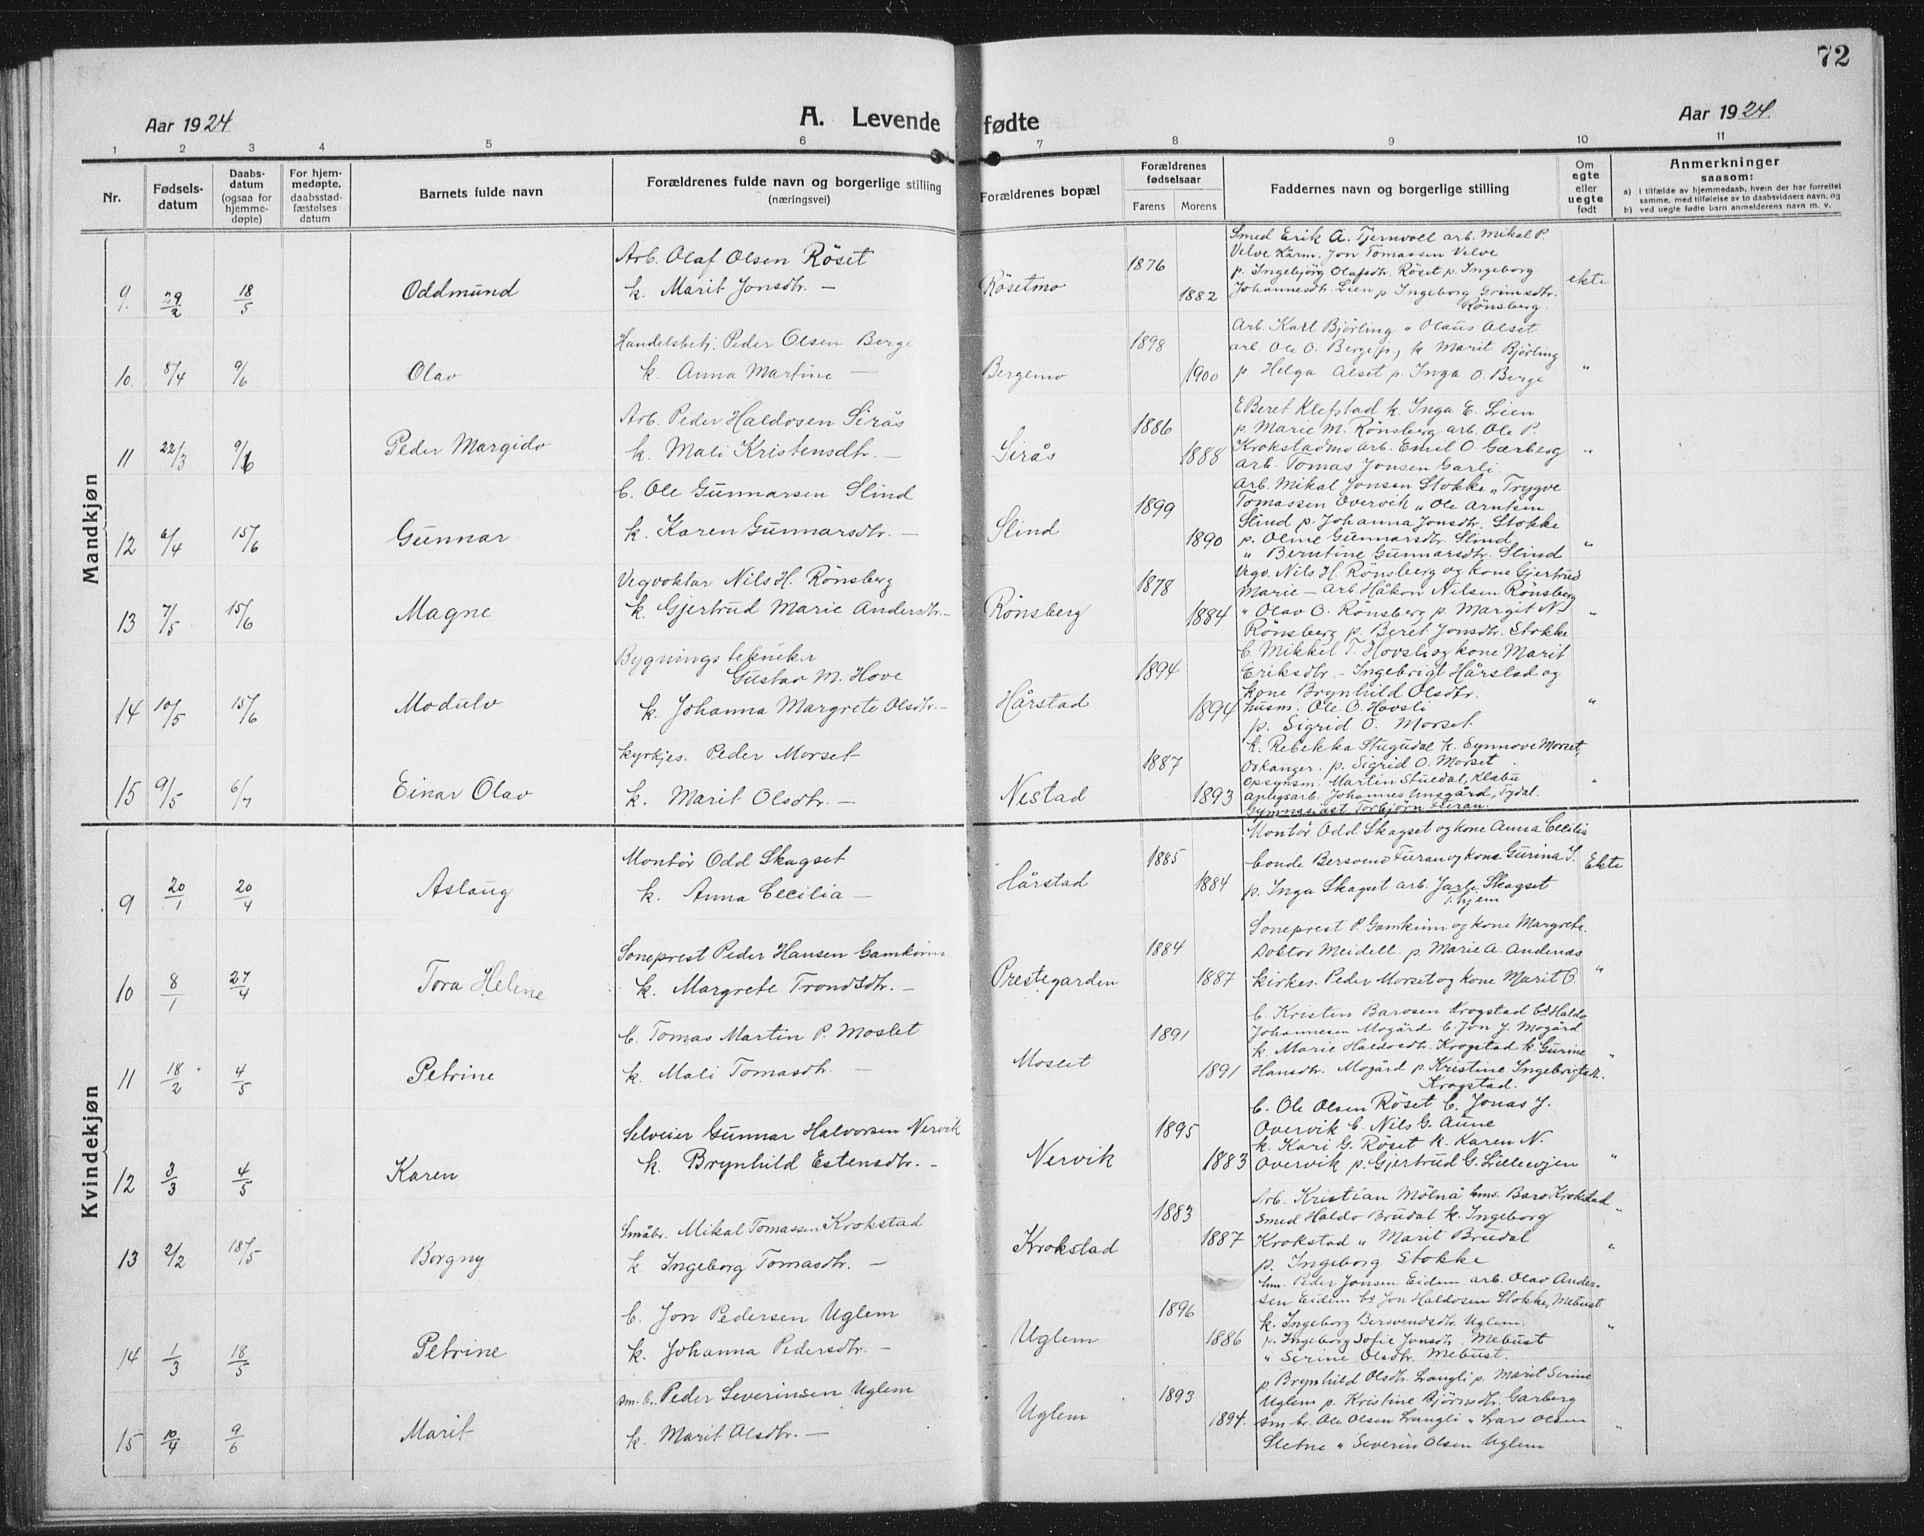 72
Aar 1924
A. Levende fødte
Aar 1924.
1 2 3 4 5 6 7 8 9 10 11
Nr.
Fødsels-
datum
Daabs-
datum
(ogsaa for
hjemme-
døpte)
For hjem-
medøpte,
daabsstad-
fæstelses
datum
Barnets fulde navn
Forældrenes fulde navn og borgerlige stilling
(næringsvei)
Forældrenes bopæl
Forældrenes
fødselsaar
Farens Morens
Faddernes navn og borgerlige stilling
Om
egte
eller
uegte
født
Anmerkninger
saasom:
a) i tilfælde av hjemmedaab, hvem der har forrettet
samme, med tilføielse av to daabsvidners navn, og
b) ved uegte fødte barn anmelderens navn m. v.
Mandkjøn
9. 29/2 18/5 Oddmund
Arb. Olaf Olsen Röset
k. Marit Jonsdtr. —
Rösetmo 1876 1882
Smed Erik A. Tjernvoll arb. Mikal P.
Velve Kårm. Jon Tomassen Velve
p. Ingebjörg Olafsdtr. Röset p. Ingeborg
Johannesdtr. Lien p. Ingeborg Grimsdtr.
Rönsberg.
ekte
10. 8/4 9/6 Olav
Handelsbetj. Peder Olsen Berge
k. Anna Martine —
Bergemo 1898 1900
Arb. Karl Bjørling " Olaus Alset
arb. Ole O. Berge p, k Marit Bjørling
p Helga Alset p. Inga O. Berge
"
11 22/3 9/6 Peder Margido
Arb. Peder Haldosen Sirås
k. Mali Kristensdtr. —
Sirås 1886 1888
E Beret Klefstad k. Inga E. Lien
p. Marie M. Rönsberg arb. Ole P.
Krokstadmo arb. Emil O. Garberg
arb. Tomas Jonsen Garli
"
12 6/4 15/6 Gunnar
b. Ole Gunnarsen Slind
k. Karen Gunnarsdtr. —
Slind 1899 1890
Arb. Mikal Jonsen Stokke " Trygve
Tomassen Overvik " Ole Arntsen
Slind p. Johanna Jonsdtr. Stokke
p. Oline Gunnarsdtr. Slind
" Berntine Gunnarsdtr. Slind
"
13 7/5 15/6 Magne
Vegvoktar Nils H. Rönsberg
k. Gjertrud Marie Andersdtr. —
Rönsberg 1878 1884
Vegv. Nils H. Rönsberg og kone Gjertrud
Marie — arb. Håkon Nilsen Rönsberg
" Olav O. Rönsberg p. Margit N.
Rönsberg p. Beret Jonsdtr. Stokke
"
14 10/5 15/6 Modulv
Bygningstekniker
Gustav M. Hove
k. Johanna Margrete Olsdtr. —
Hårstad 1894 1894
b. Mikkel T. Hovsli og kone Marit
Eriksdtr. — Ingebrigt Hårstad og
kone Brynhild Olsdtr.
husm. Ole O. Hovsli
p. Sigrid O. Morset
"
15 9/5 6/7 Einar Olav
kyrkjes. Peder Morset
k. Marit Olsdtr. —
Nestad 1887 1893
k. Rebekka Stugudal k. Synnove Morset,
Orkanger. p. Sigrid O. Morset.
Opsynsm. Martin Stuedal, Klæbu
anlegsarb. Johannes Unsgård, Tydal.
Gymnasiast Torbjörn Fieran.
"
Kvindekjøn
9 20/1 20/4 Aslaug
Montör Odd Skagset
k. Anna Cecilia —
Hårstad 1885 1884
Montör Odd Skagset og kone Anna Cecilia
bonde Bersvend Furan og kona Gurina S.
p. Inga Skagset arb. Jarle Skagset
T. hjem
Ekte
10 8/1 27/4 Tora Helene
Soneprest Peder Hansen Gamkinn
k. Margrete Trondsdtr. —
Prestegarden 1884 1887
Soneprest P. Gamkinn og kone Margrete.
Doktor Meidell p. Marie A. Andenas
Kirkes. Peder Morset og kone Marit O.
"
11 18/2 4/5 Petrine
b. Tomas Martin P. Moslet
k. Mali Tomasdtr. —
Moslet 1891 1891
b. Kristen Barosen Krogstad bs Haldo
Johannesen Mogård b. Jon J. Mogård
k. Marie Haldosdtr. Krogstad k. Gurine
Hansdtr. Mogård p. Kristine Ingebrigtsdtr.
Krogstad.
"
12 3/3 4/5 Karen
Selveier Gunnar Halvorsen Nervik
k. Brynhild Estensdtr. —
Nervik 1895 1883
b. Ole Olsen Röset b. Jonas J.
Overvik b. Nils G. Aune
k. Kari G. Röset k. Karen N.
Overvik p. Gjertrud G. Lillevjen
"
13 2/2 18/5 Borgny
Småbr. Mikal Tomassen Krokstad
k. Ingeborg Tomasdtr. —
Krokstad 1883 1887
Arb. Kristian Mölnå hms. Baro Krokstad
Smed Haldo Brudal k. Ingeborg
Krokstad " Marit Brudal
p. Ingeborg Stokke
"
14 1/3 18/5 Petrine
b. Jon Pedersen Uglem
k. Johanna Pedersdtr. —
Uglem 1896 1886
hm. Peder Jonsen Eidem arb. Olav Ander-
sen Eidem bs Jon Haldosen Stokke, Mebust
k. Ingeborg Bersvendsdtr. Uglem.
p. Ingeborg Sofie Jonsdtr. Mebust
" Serine Olsdtr. Mebust.
"
15 10/4 9/6 Marit
sm. br. Peder Severinsen Uglem
k. Marit Olsdtr. —
Uglem 1893 1894.
p Brynhild Olsdtr. Langli p. Marit Serine
Uglem p. Kristine Bjørnsdtr. Garberg
sm br. Ole Olsen Langli " Lars Olsen
Sletne " Severin Olsen Uglem
"